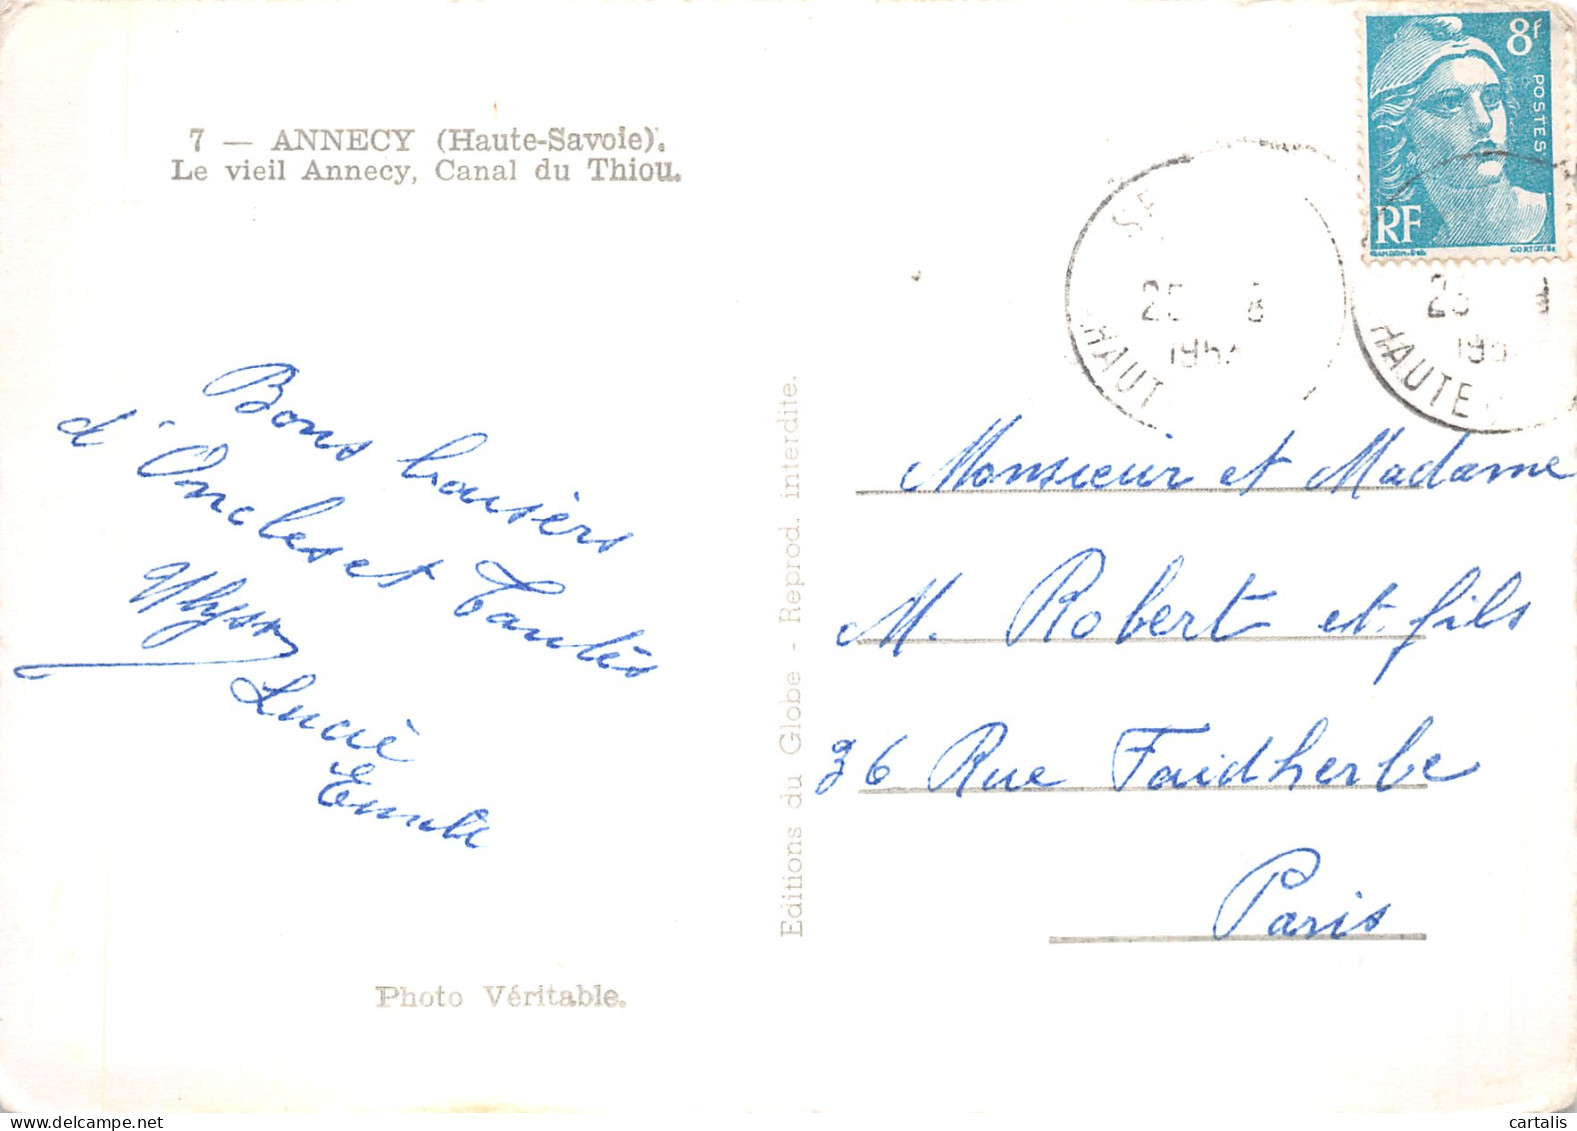 7 — ANNECY (Haute-Savoie).
Le vieil Annecy, Canal du Thiou.
Bons baisers
d'Oncles et Tantes
Ulysse
Lucie
Emile
Photo Véritable.
Editions du Globe - Reprod. interdite.
8f
POSTES
RF
GANDON.Del
CORTOT.Sc
25 8
HAUT
HAUTE
Monsieur et Madame
M. Robert et fils
36 Rue Faidherbe
Paris
cartalis